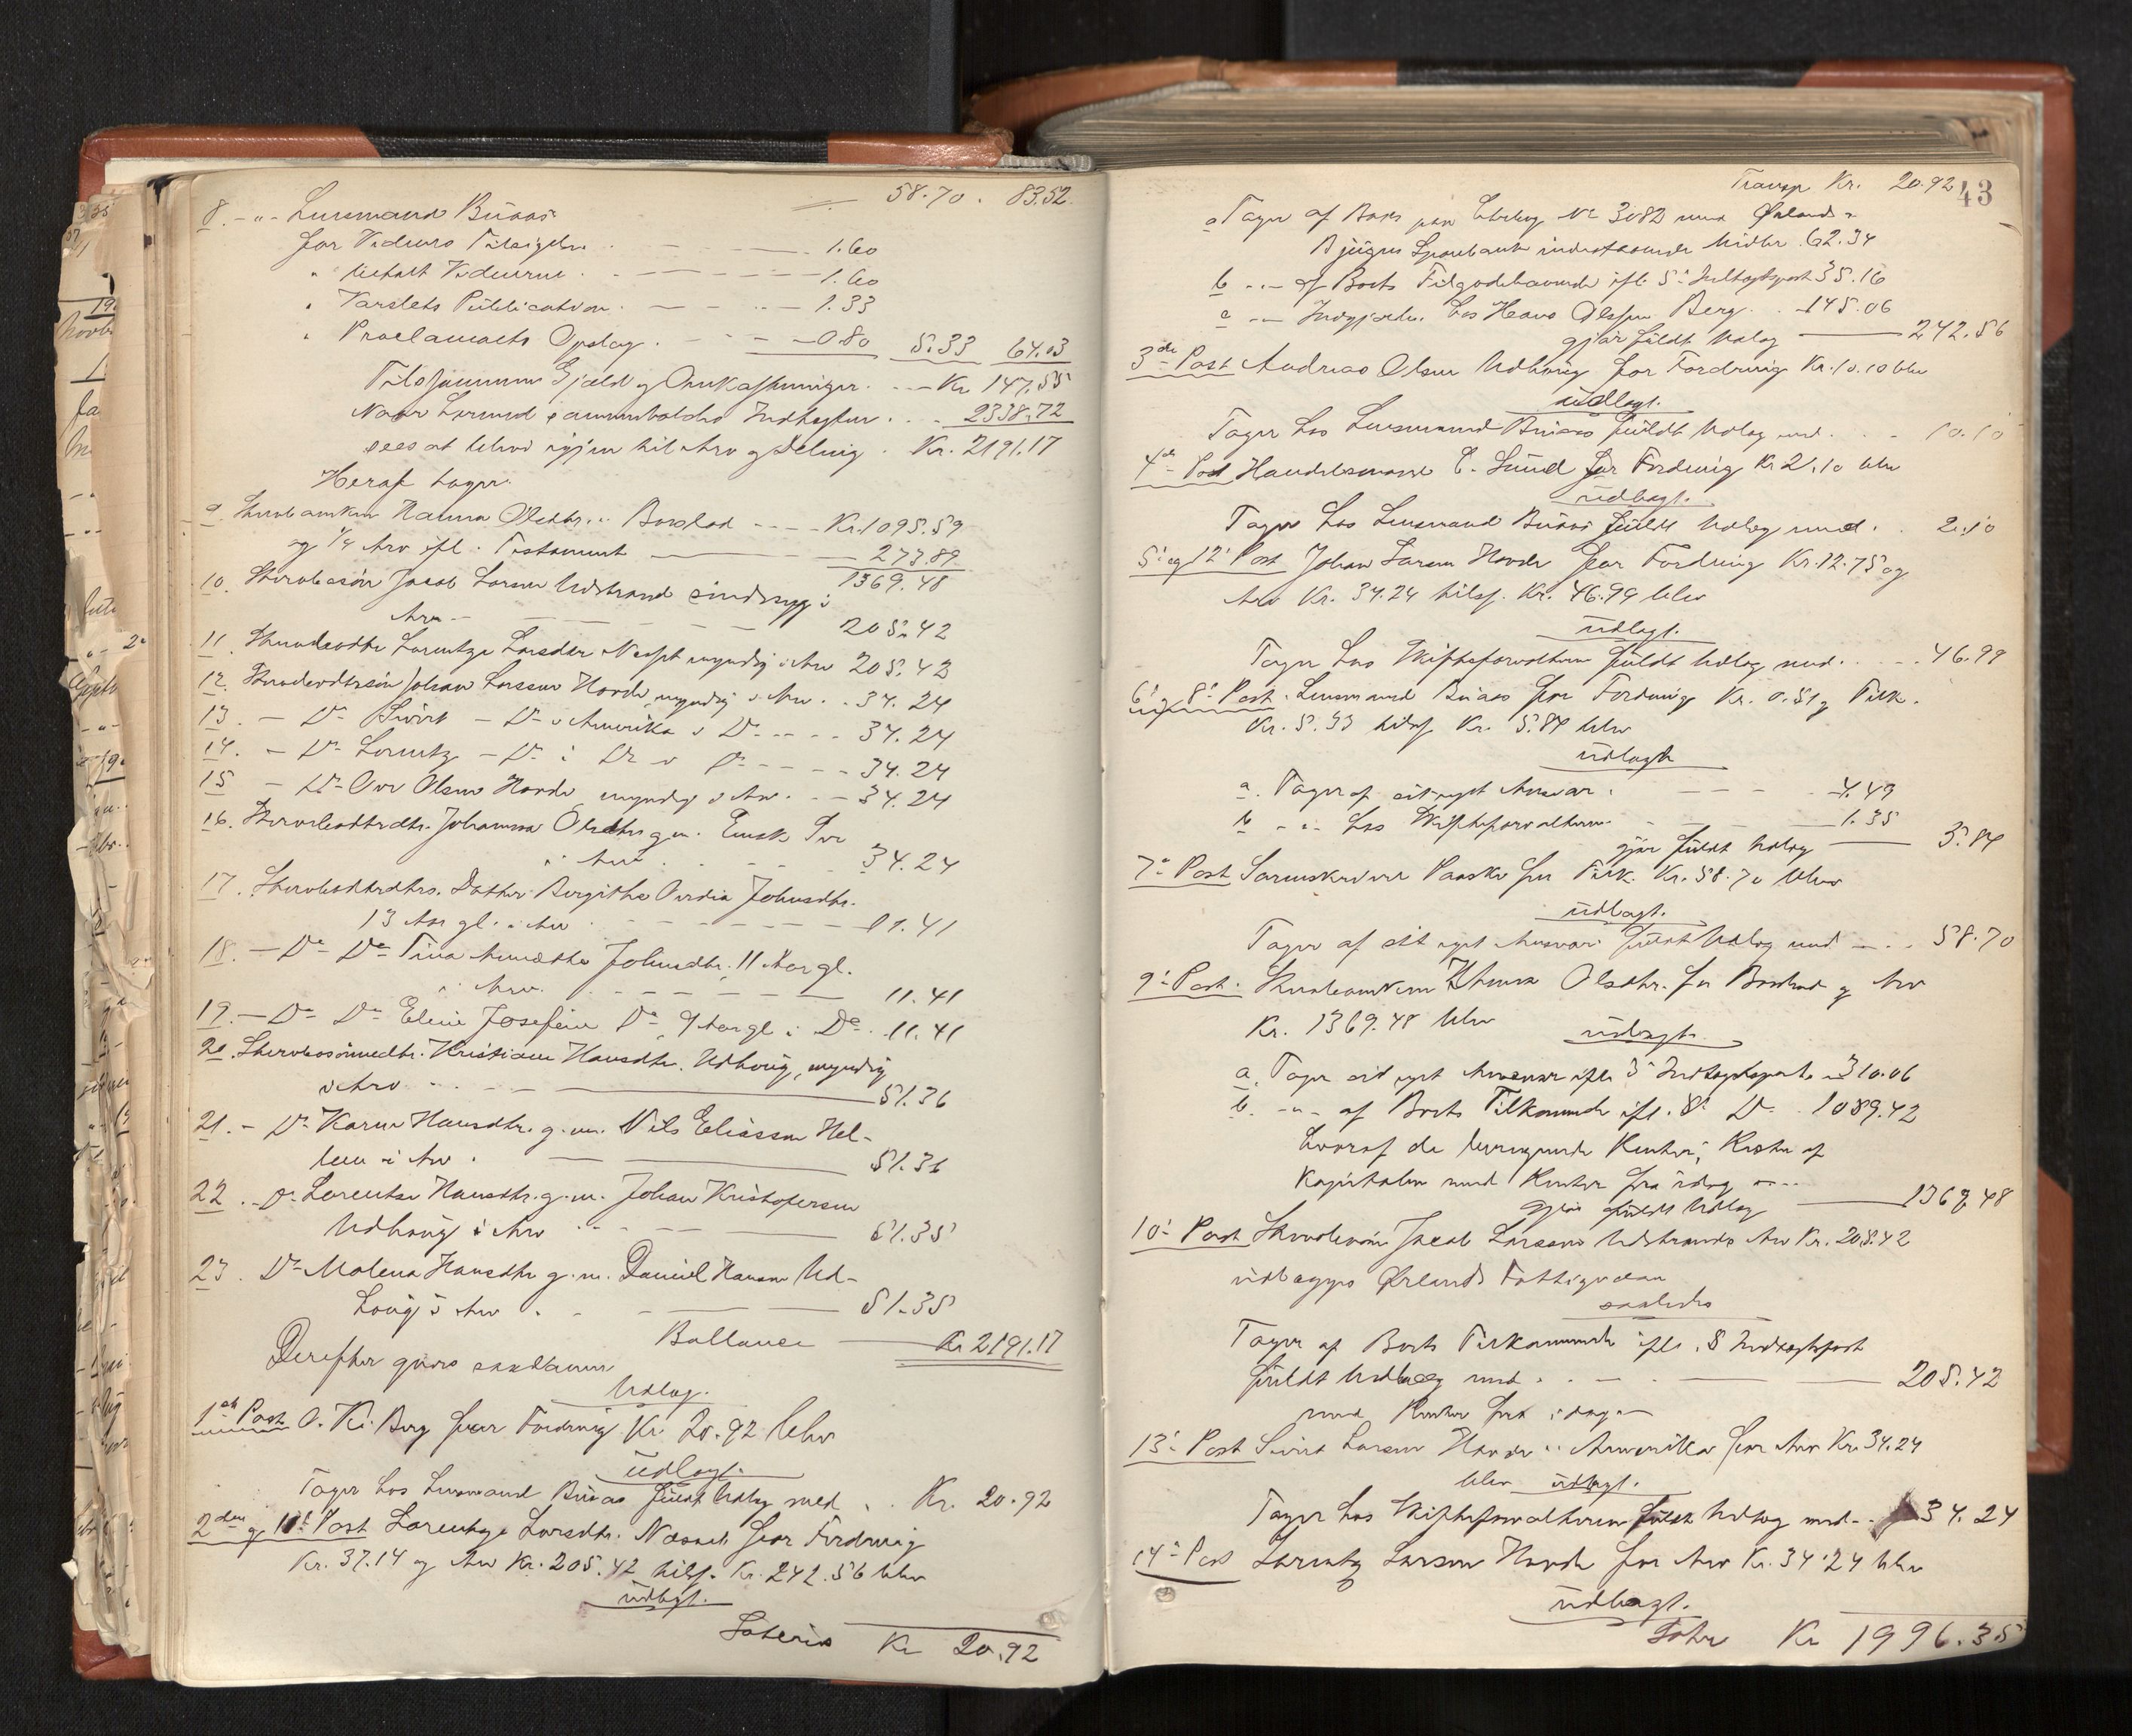 58.70. 83.52.
8. -"- Lensmand Büaas
for Vidners Tilsigelse . 1.60
" betalt Vidnerne . 1.60
" Varslets Püblication . 1.33
" Proclamaets Opslag . 0.80 5.33 64.03
Tilsammen Gjæld og Omkostninger . Kr. 147.55
Naar herimod sammenholdes Indtægten . 2338.72
sees at blive igjen til Arv og Deling . Kr. 2191.17
Heraf tager:
9. Sterboenken Hanna Olsdtr. i Boeslod Kr. 1095.59
og 1/4 Arv ifl. Testament 273.89
1369.48
10. Sterbosøn Jacob Larsen Udstrand sindssyg i
Arv 205.42
11. Sterbodatter Lorentze Larsdtr. Næsset myndig i Arv 205.42
12. Sterbodtrsøn Johan Larssen Hovde, myndig i Arv . 34.24
13. - Do Sivert - Do i Amerika i Do 34.24
14. - Do Lorentz - Do i Do i Do 34.24
15 - Do Ove Olsen Hovde myndig i Arv . 34.24
16. Sterbodtrdtr. Johanna Olsdtr. g. m.
i Arv . 34.24
17. Sterbodtrdtrs. Datter Bergithe Ovidia Johnsdtr.
13 Aar gl. i Arv 11.41
18. - Do Do Tina Annette Johnsdtr. 11 Aar gl.
i Arv. 11.41
19. - Do Do Eline Josefine Do, 9 Aar gl i Do . 11.41
20. Sterbosønnedtr. Kristiane Hansdtr. Udhoug, myndig
i Arv 51.36
21. - Do Karen Hansdtr. g. m. Nils Eliassen Hel-
lem i Arv . 51.36
22. - Do Lorentse Hansdtr. g. m. Johan Kristofersen
Udhoüg i Arv 51.35
23. Do Malena Hansdtr g. m. Daniel Hansen Ud-
houg i Arv . 51.35
Ballance Kr. 2191.17
Derefter gjøres saadanne
Udlæg.
1ste Post O. K. Berg for Fordring Kr. 20.92 blev
üdlagt.
Tager hos Lensmand Büaas füldt Udlæg med . . Kr. 20.92
2den og 11te Post Lorentze Larsdtr. Næsset for Fordring
Kr. 37.14 og Arv Kr. 205.42 tils. Kr. 242.56 blev
üdlagt.
Lateris Kr 20.92
43
Transp Kr. 20.92
a Tager af Boets paa Contrabog No 3082 med Ørlands &
Bjügns Sparebank indestaaende Midler . 62.34
b -"- af Boets Tilgodehavende ifl. 5te Indtægtspost 35.16
c -"- Indgjælde. hos Hans Olsen Berg . 145.06
gjør füldt Udlæg 242.56
3die Post Andreas Olsen Udhoüg for Fordring Kr. 10.10 blev
üdlagt.
Tager hos Lensmand Büaas füldt Udlæg med . 10.10
4de Post Handelsmand C. Lünd for Fordring Kr 2.10 blev
üdlagt.
Tager hos Lensmand Büaas füldt Udlæg med . 2.10
5te og 12te Post Johan Larsen Hovde for Fordring Kr. 12.75 og
Arv Kr. 34.24 tils. Kr. 46.99 blev
üdlagt.
Tager hos Skifteforvalteren füldt Udlæg med . 46.99
6te og 8de Post Lensmand Büaas for Fordring Kr. 0.51 og Tilk.
Kr. 5.33 tils. Kr. 5.84 blev
üdlagt
a. Tager af sit eget Ansvar . 4.49
b -"- hos Skifteforvalteren 1.35
gjør füldt Udlæg 5.84
7de Post Sorenskriver Paaske for Tilk. Kr. 58.70 blev
üdlagt.
Tager af sit eget Ansvar füldt Udlæg med 58.70
9de Post. Sterboenken Hanna Olsdtr. for Boeslod og Arv
Kr. 1369.48 blev
üdlagt.
a. Tager sit eget Ansvar ifl. 3de Indtægtspost 310.06
b. -"- af Boets Tilkommende ifl. 8de Do . 1089.42
hvoraf de Renter, Resten af
Kapitalen med Renter fra idag
gjør füldt Udlæg 1369.48
10de Post Sterbosøn Jacob Larsens Udstrands Arv Kr. 205.42
üdlægges Ørlands Fattigvæsen
saaledes
Tager af Boets Tilkommende ifl. 8 Indtægtspost
füldt Udlæg med . 205.42
med Renter fra idag
13de Post Sivert Larsen Hovde i Amerika for Arv Kr. 34.24
blev üdlagt.
Tager hos Skifteforvalteren füldt Udlæg med 34.24
14de Post Lorentz Larsen Hovde for Arv Kr. 34.24 blev
üdlagt.
Latr Kr 1996.35